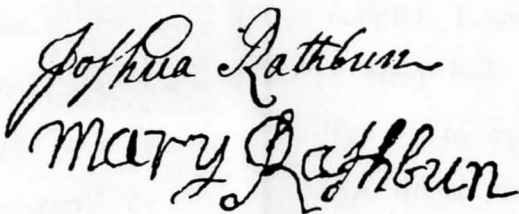 Joshua Rathbun
Mary Rathbun